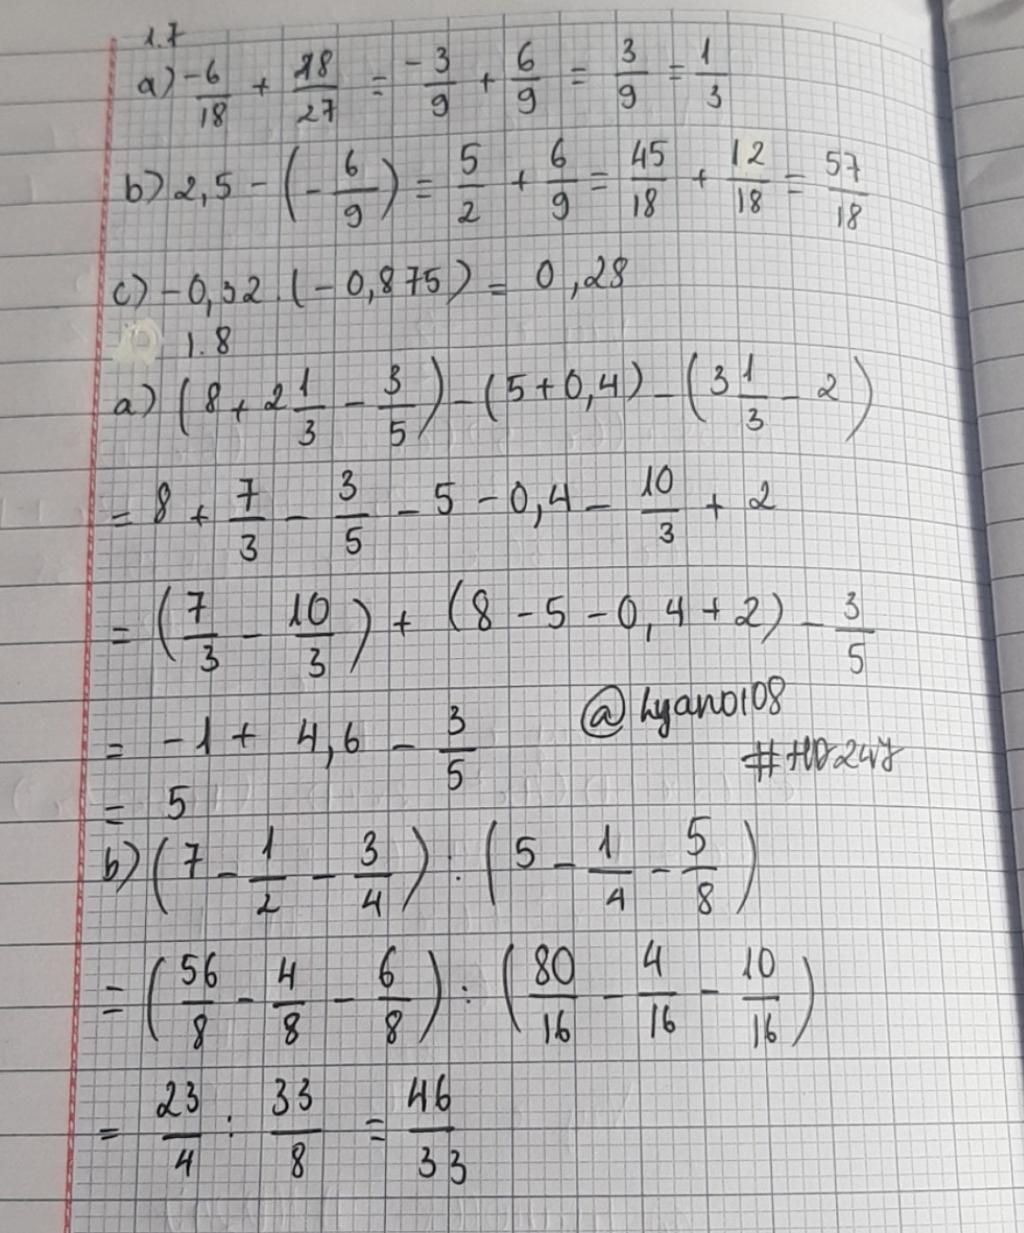 1.7
a) -6/18 + 18/27 = -3/9 + 6/9 = 3/9 = 1/3
b) 2,5 - (- 6/9) = 5/2 + 6/9 = 45/18 + 12/18 = 57/18
c) - 0,32 . (- 0,875) = 0,28
1.8
a) (8 + 2 1/3 - 3/5) - (5 + 0,4) - (3 1/3 - 2)
= 8 + 7/3 - 3/5 - 5 - 0,4 - 10/3 + 2
= (7/3 - 10/3) + (8 - 5 - 0,4 + 2) - 3/5
= -1 + 4,6 - 3/5
@hyano108
= 5
b) (7 - 1/2 - 3/4) : (5 - 1/4 - 5/8)
= (56/8 - 4/8 - 6/8) : (80/16 - 4/16 - 10/16)
= 23/4 : 33/8 = 46/33